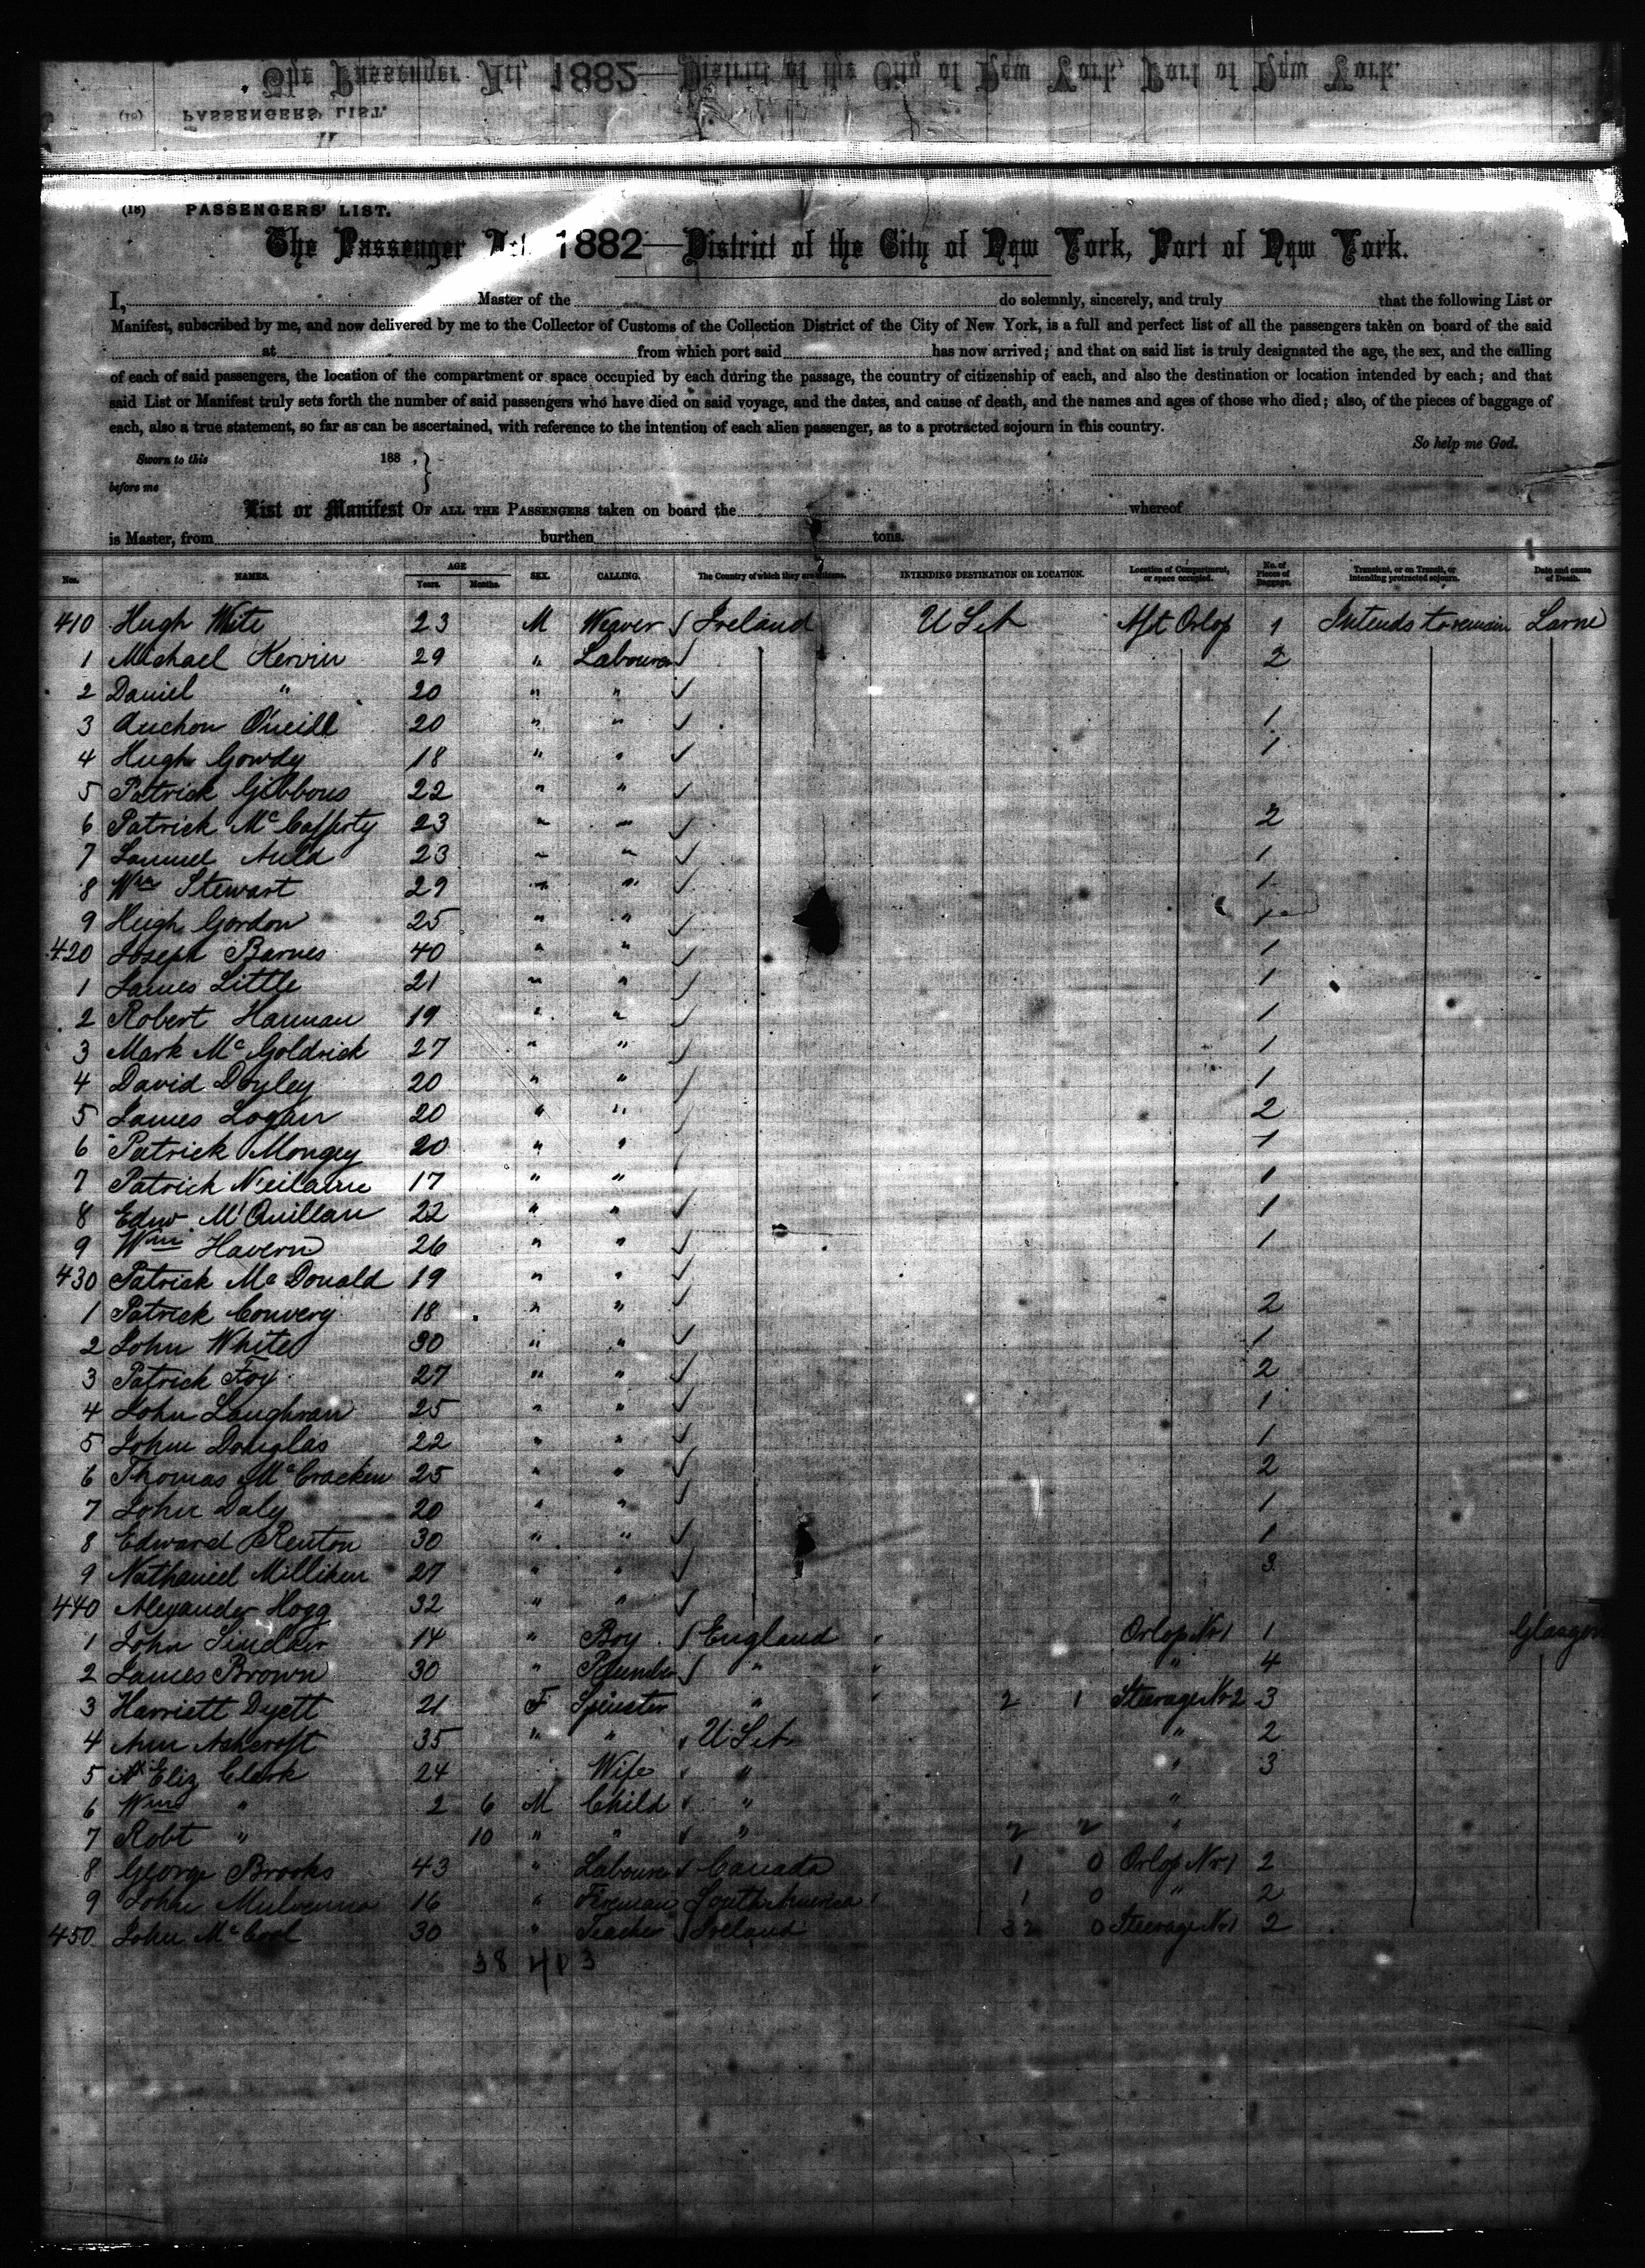 (18) PASSENGERS' LIST.
The Passenger Act 1882—District of the City of New York, Port of New York.
I, Master of the do solemnly, sincerely, and truly that the following List or
Manifest, subscribed by me, and now delivered by me to the Collector of Customs of the Collection District of the City of New York, is a full and perfect list of all the passengers taken on board of the said
at from which port said has now arrived; and that on said list is truly designated the age, the sex, and the calling
of each of said passengers, the location of the compartment or space occupied by each during the passage, the country of citizenship of each, and also the destination or location intended by each; and that
said List or Manifest truly sets forth the number of said passengers who have died on said voyage, and the dates, and cause of death, and the names and ages of those who died; also, of the pieces of baggage of
each, also a true statement, so far as can be ascertained, with reference to the intention of each alien passenger, as to a protracted sojourn in this country.
So help me God.
Sworn to this 188
before me
List or Manifest OF ALL THE PASSENGERS taken on board the whereof
is Master, from burthen tons.
Nos. NAMES. AGE Years. Months. SEX. CALLING. The Country of which they are citizens. INTENDING DESTINATION OR LOCATION. Location of Compartment, or space occupied. No. of Pieces of Baggage. Transient, or on Transit, or intending protracted sojourn. Date and cause of Death.
410 Hugh Wite 23 M Weaver Ireland U S A Aft Orlop 1 Intends to remain Larne
1 Michael Kervin 29 " Labourer 2
2 Daniel " 20 " "
3 O'neill 20 " " 1
4 Hugh Gowdy 18 " " 1
5 Patrick Gibbons 22 " "
6 Patrick McCafferty 23 " " 2
7 Samuel Auld 23 " " 1
8 Wm Stewart 29 " " 1
9 Hugh Gordon 25 " " 1
420 Joseph Barnes 40 " " 1
1 James Little 21 " " 1
2 Robert Hannan 19 " " 1
3 Mark McGoldrick 27 " " 1
4 David Doyley 20 " " 1
5 James Logan 20 " " 2
6 Patrick Mongey 20 " " 1
7 Patrick 17 " " 1
8 Edw. McQuillan 22 " " 1
9 Wm Havern 26 " " 1
430 Patrick McDonald 19 " "
1 Patrick Convery 18 " " 2
2 John White 30 " " 1
3 Patrick Foy 27 " " 2
4 John Laughran 25 " " 1
5 John Douglas 22 " " 1
6 Thomas McCracken 25 " " 2
7 John Daly 20 " " 1
8 Edward Renton 30 " " 1
9 Nathaniel Milliken 27 " " 3
440 Alexander Hogg 32 " "
1 John 14 " Boy England " Orlop No 1 1 Glasgow
2 James Brown 30 " Plumber " " " 4
3 Harriett Dyett 21 F Spinster " " 2 1 Steerage No 2 3
4 Ann Ashcroft 35 " " U S A " 2
5 Eliz Clark 24 Wife " " 3
6 Wm " 2 6 M Child " "
7 Robt " 10 " " " 2 2 "
8 George Brooks 43 " Labourer Canada 1 0 Orlop No 1 2
9 John Mulvenna 16 " Fireman South America " 1 0 " 2
450 John McCool 30 " Teacher Ireland 32 0 Steerage No 1 2
38 40 3